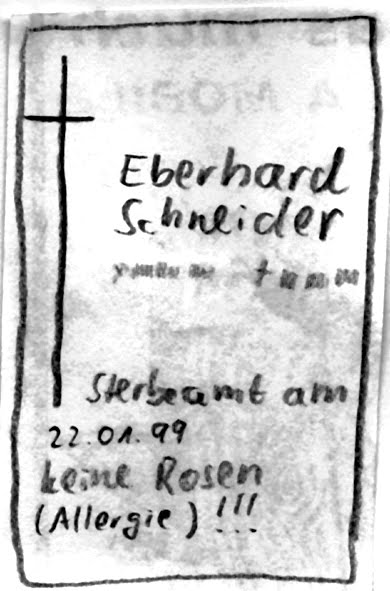 Eberhard
Schneider
Sterbeamt am
22.01.99
keine Rosen
(Allergie) !!!